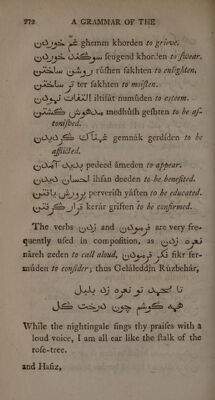 272 A GRAMMAR OF THE
غم خوردن ghemm khorden to grieve.
سوگند خوردن seugend khorden to swear.
روشن ساختن rūshen sākhten to enlighten.
تر ساختن ter sākhten to moisten.
التفات نمودن iltifāt numūden to esteem.
مدهوش گشتن medhūsh geshten to be as-
tonished.
غمناک گردیدن gemnāk gerdīden to be
afflicted.
پدید آمدن pedeed āmeden to appear.
احسان دیدن ihsān deeden to be benefited.
پرورش یافتن perverish yāften to be educated.
قرار گرفتن kerār griften to be confirmed.
The verbs زدن and فرمودن are very fre-
quently used in composition, as نعره زدن
nāreh zeden to call aloud, فکر فرمودن fikr fer-
mūden to consider; thus Gelāleddīn Rūzbehār,
تا بلبل زد نعره تو
همه گوشم چون درخت گل
While the nightingale sings thy praises with a
loud voice, I am all ear like the stalk of the
rose-tree.
and Hafiz,